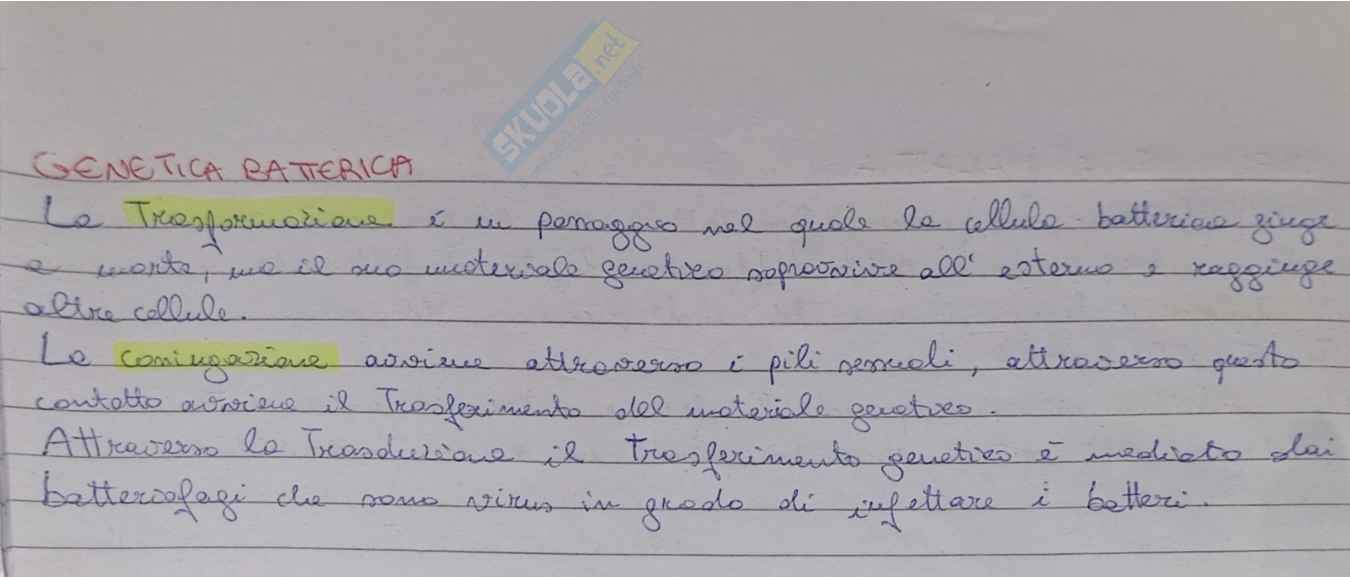 SKUOLA.net
GENETICA BATTERICA
La Trasformazione è un passaggio nel quale la cellula batterica giunge
a morte, ma il suo materiale genetico sopravvive all'esterno e raggiunge
altre cellule.
La coniugazione avviene attraverso i pili sessuali, attraverso questo
contatto avviene il Trasferimento del materiale genetico.
Attraverso la Trasduzione il trasferimento genetico è mediato dai
batteriofagi che sono virus in grado di infettare i batteri.